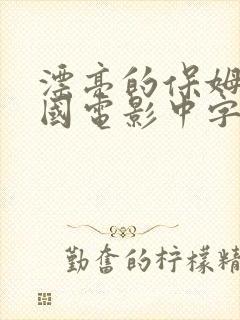 漂亮的保姆
國電影中字
勤奮的柠檬精